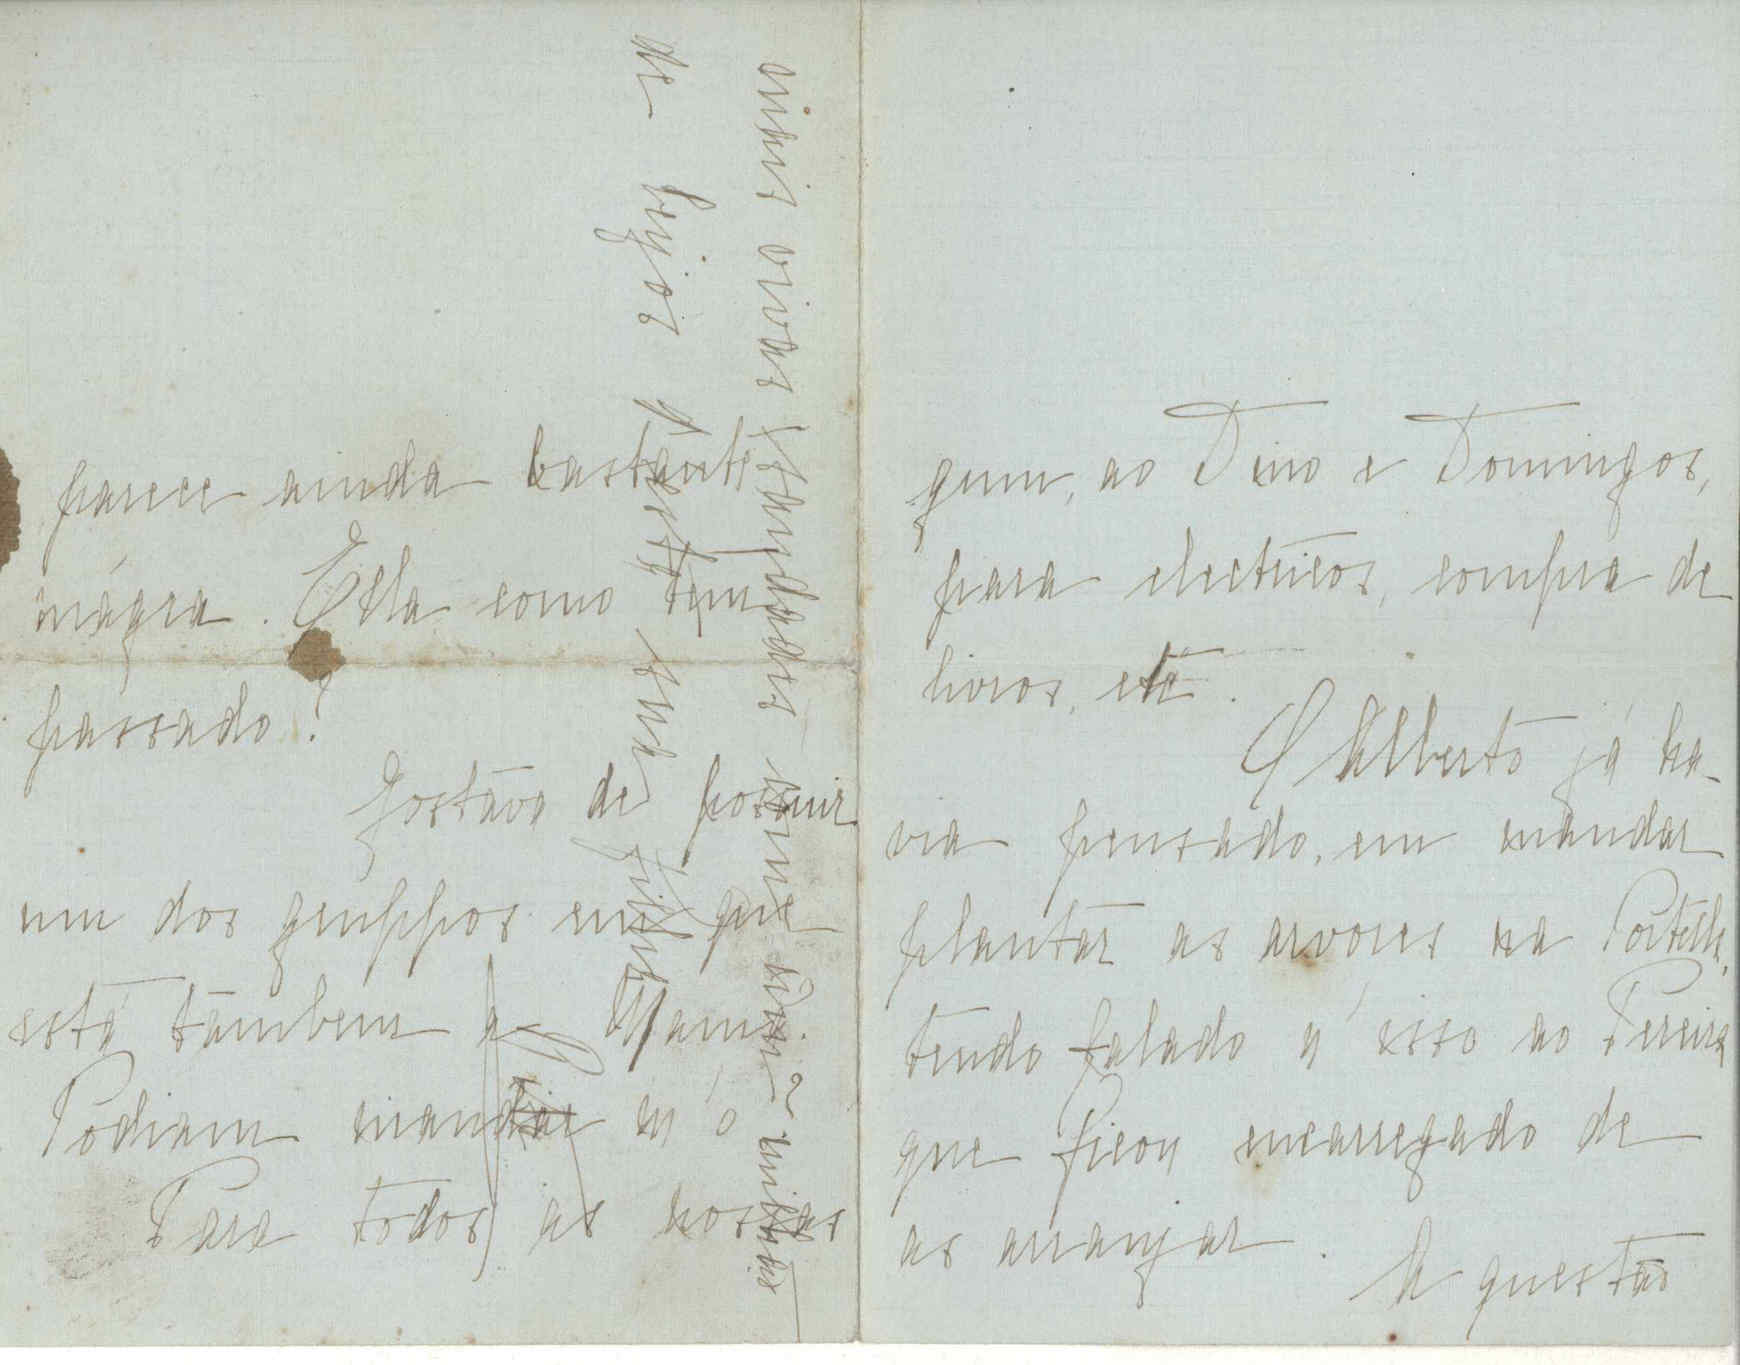 parece ainda bastante
mágra. Ella como tem
passado?
Gostava de possuir
um dos gruppos em que
está tambem a Mamã.
Podiam mandar n'o
Para todos as nossas
mais vivas saudades
mil
de beijos d'esta sua
gum, ao Dino e Domingos,
para electricos, compra de
livros, etc.
O Alberto já ha-
via pensado, em mandar
plantar as arvores na Portella,
tendo falado n'isso ao Pereira
que ficou encarregado de
as arranjar.
A questão